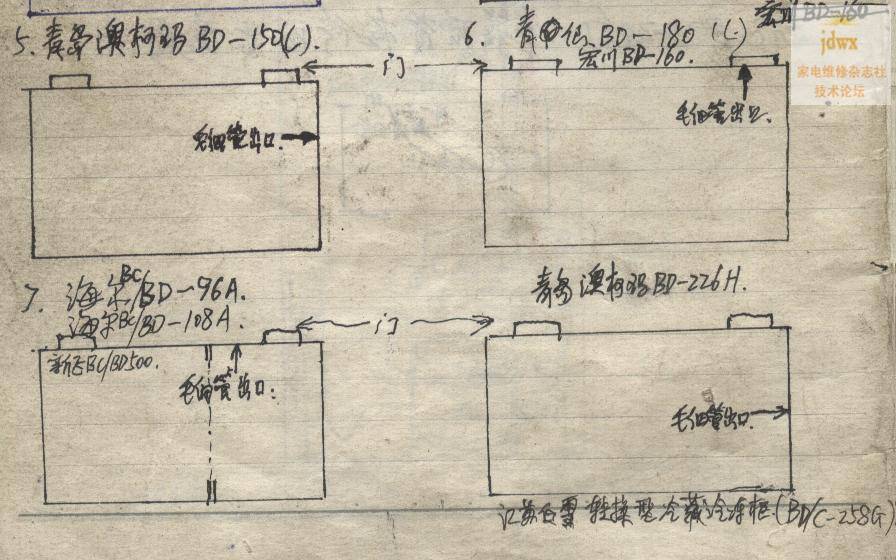 5. 青岛澳柯玛 BD-150(C).
6. 青 BD-180 (L)
宏川 BD-160.
宏川 BD-160
jdwx
家电维修杂志社
技术论坛
门
毛细管出口.
毛细管出口.
7. 海尔BC/BD-96A.
海尔BC/BD-108A.
青岛澳柯玛BD-226H.
门
新飞BC/BD500.
毛细管出口:
毛细管出口.
江苏白雪 转换型冷藏冷冻柜.(BD/C-258G)